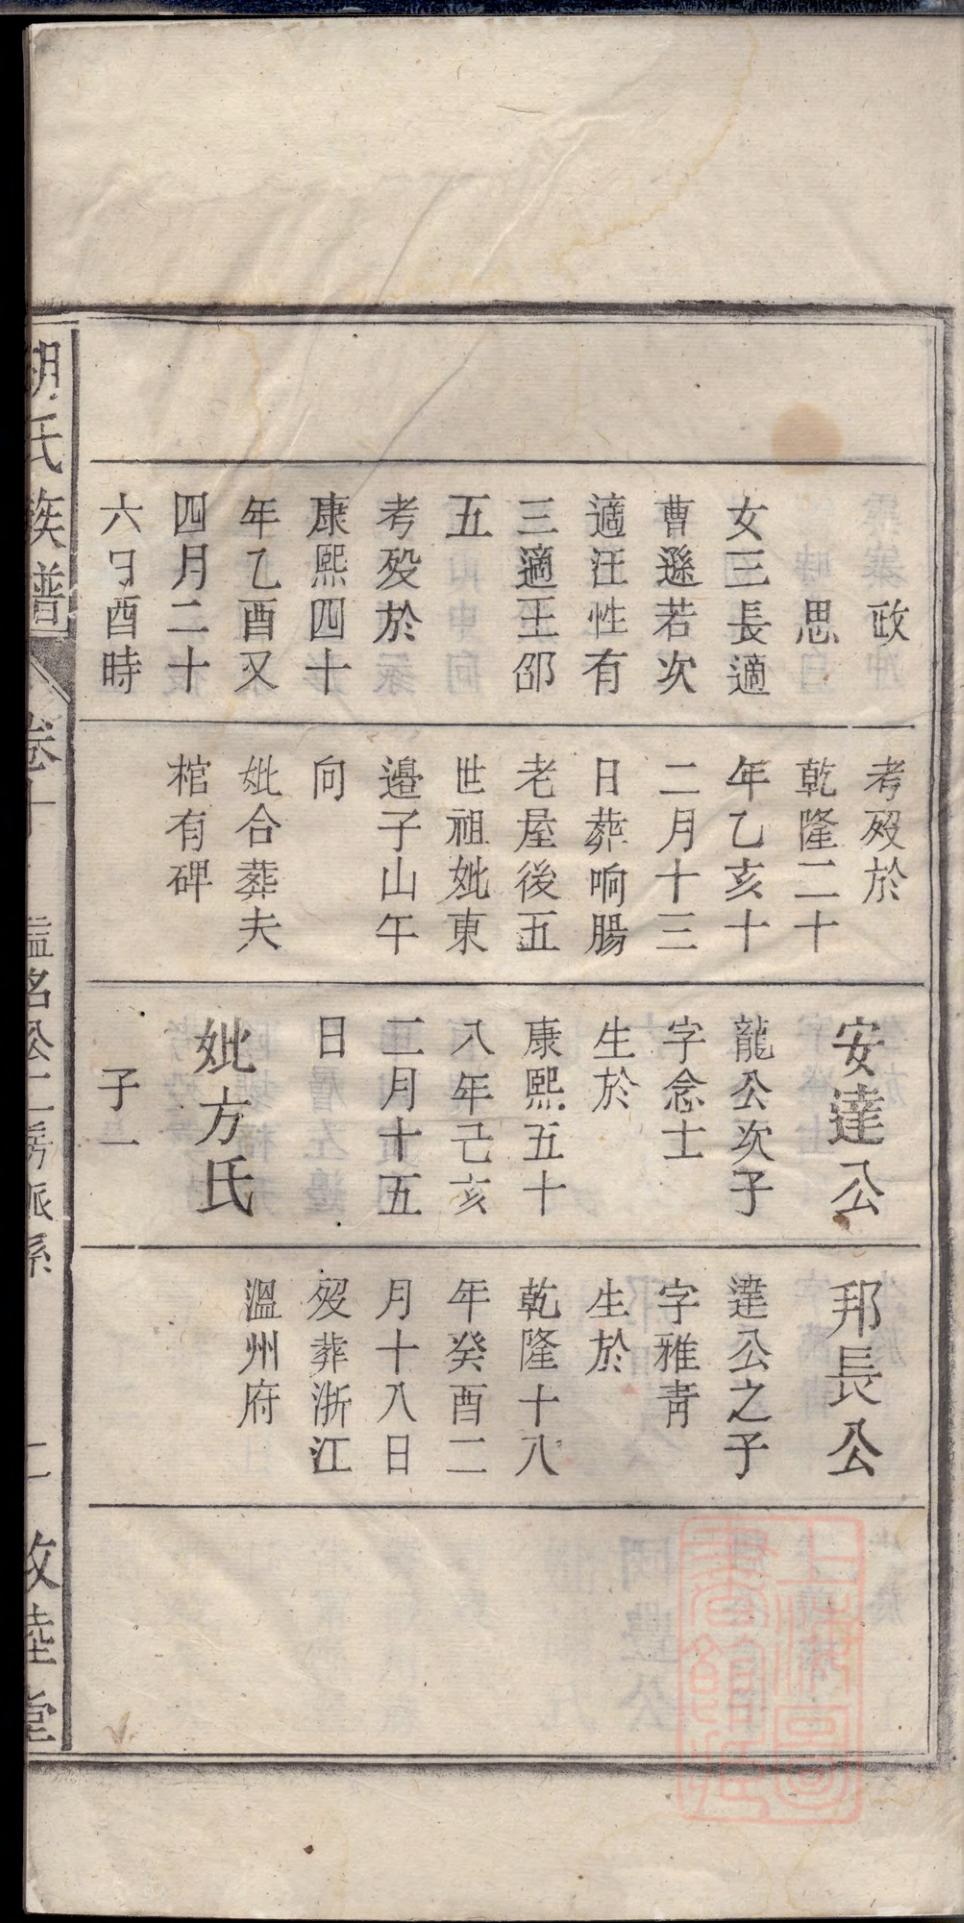 政
思
女三長適
曹遜若次
適汪性有
三適王邵
五
考歿於
康熙四十
年乙酉又
四月二十
六日酉時
考歿於
乾隆二十
年乙亥十
二月十三
日葬响腸
老屋後五
世祖妣東
邉子山午
向
妣合葬夫
棺有碑
安達公
龍公次子
字念士
生於
康熙五十
八年己亥
二月十五
日
妣方氏
子一
邦長公
達公之子
字雅青
生於
乾隆十八
年癸酉二
月十八日
歿葬浙江
溫州府
胡氏族譜 卷 名公二房派系 敦睦堂